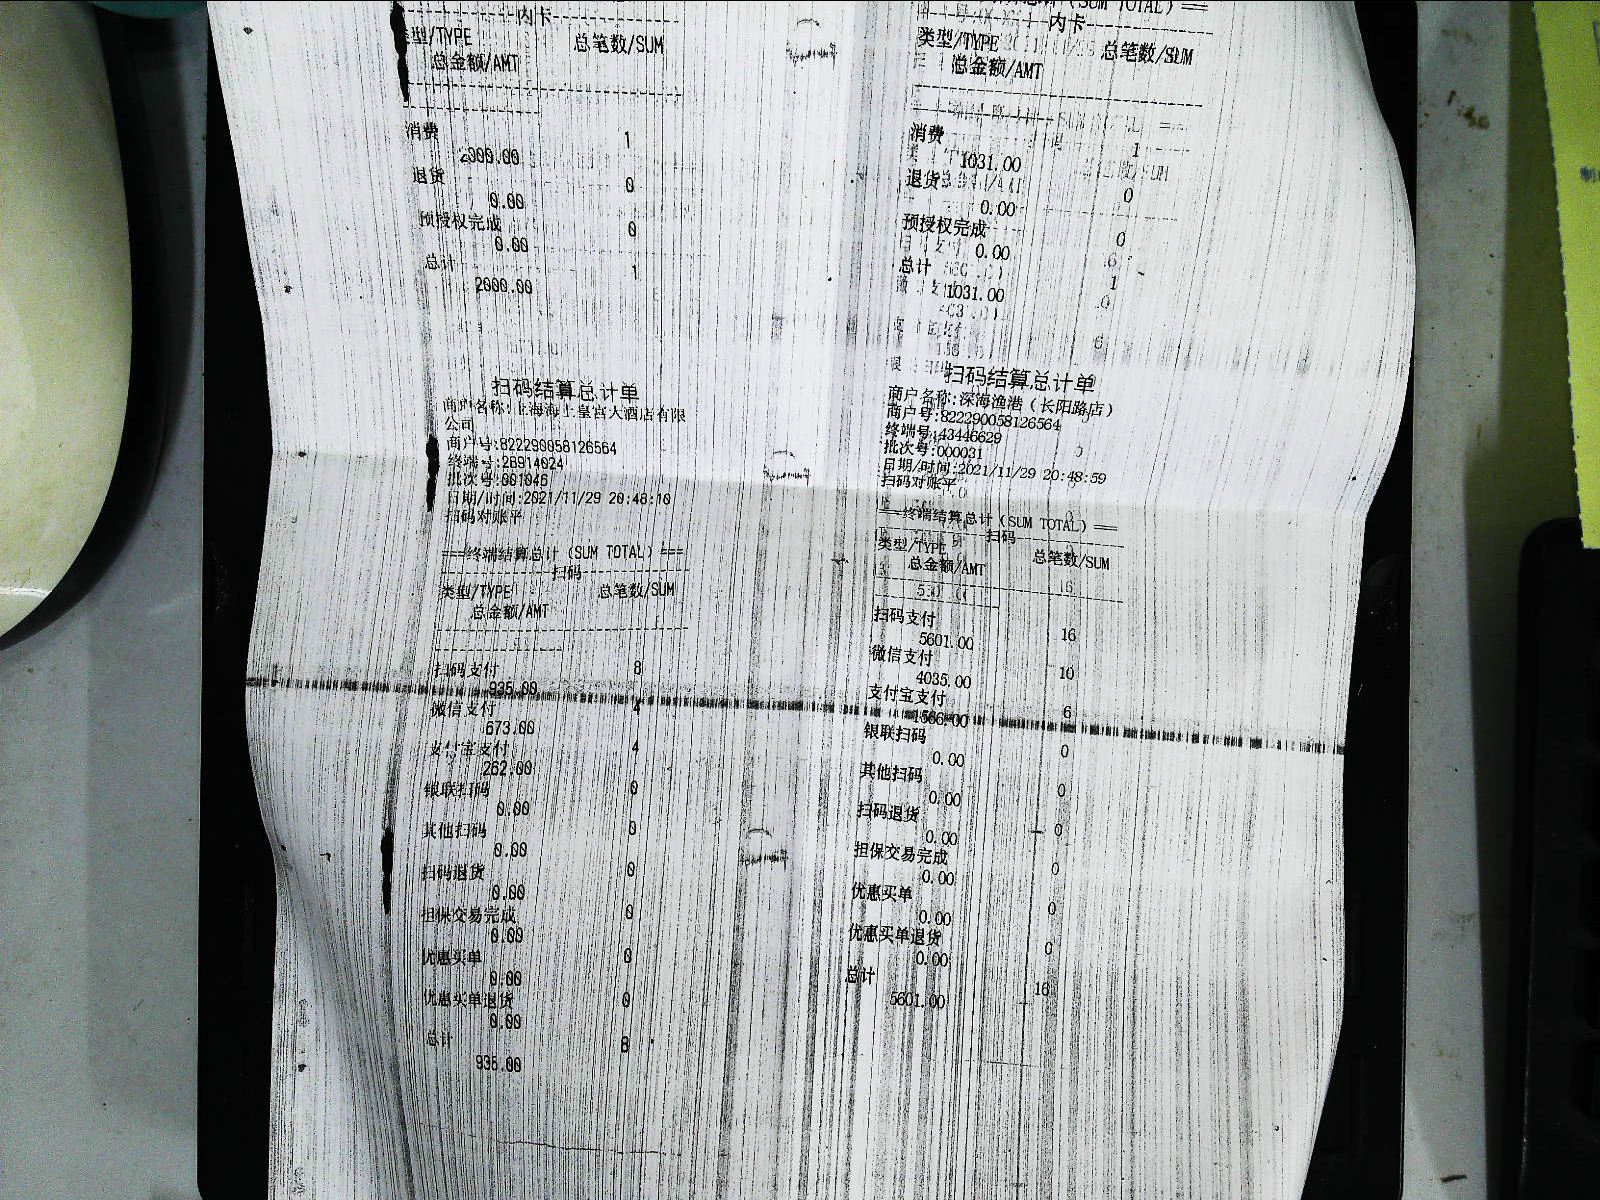 内卡
类型/TYPE 总笔数/SUM
总金额/AMT
消费 1
2000.00
退货 0
0.00
预授权完成 0
0.00
总计 1
2000.00
扫码结算总计单
商户名称:上海海上皇宫大酒店有限
公司
商户号:822290058126564
终端号:28914024
批次号:001046
日期/时间:2021/11/29 20:48:10
扫码对账平
===终端结算总计(SUM TOTAL)===
扫码
类型/TYPE 总笔数/SUM
总金额/AMT
扫码支付 8
935.00
微信支付 4
673.00
支付宝支付 4
262.00
银联扫码 0
0.00
其他扫码 0
0.00
扫码退货 0
0.00
担保交易完成 0
0.00
优惠买单 0
0.00
优惠买单退货 0
0.00
总计 8
935.00
(SUM TOTAL)==
内卡
类型/TYPE 总笔数/SUM
总金额/AMT
消费 1
1031.00
退货 0
0.00
预授权完成 0
0.00
总计 1
1031.00
扫码结算总计单
商户名称:深海渔港(长阳路店)
商户号:822290058126564
终端号:43446629
批次号:000031
日期/时间:2021/11/29 20:48:59
扫码对账平
==终端结算总计(SUM TOTAL)==
扫码
类型/TYPE 总笔数/SUM
总金额/AMT
扫码支付 16
5601.00
微信支付 10
4035.00
支付宝支付 6
1566.00
银联扫码 0
0.00
其他扫码 0
0.00
扫码退货 0
0.00
担保交易完成 0
0.00
优惠买单 0
0.00
优惠买单退货 0
0.00
总计 16
5601.00